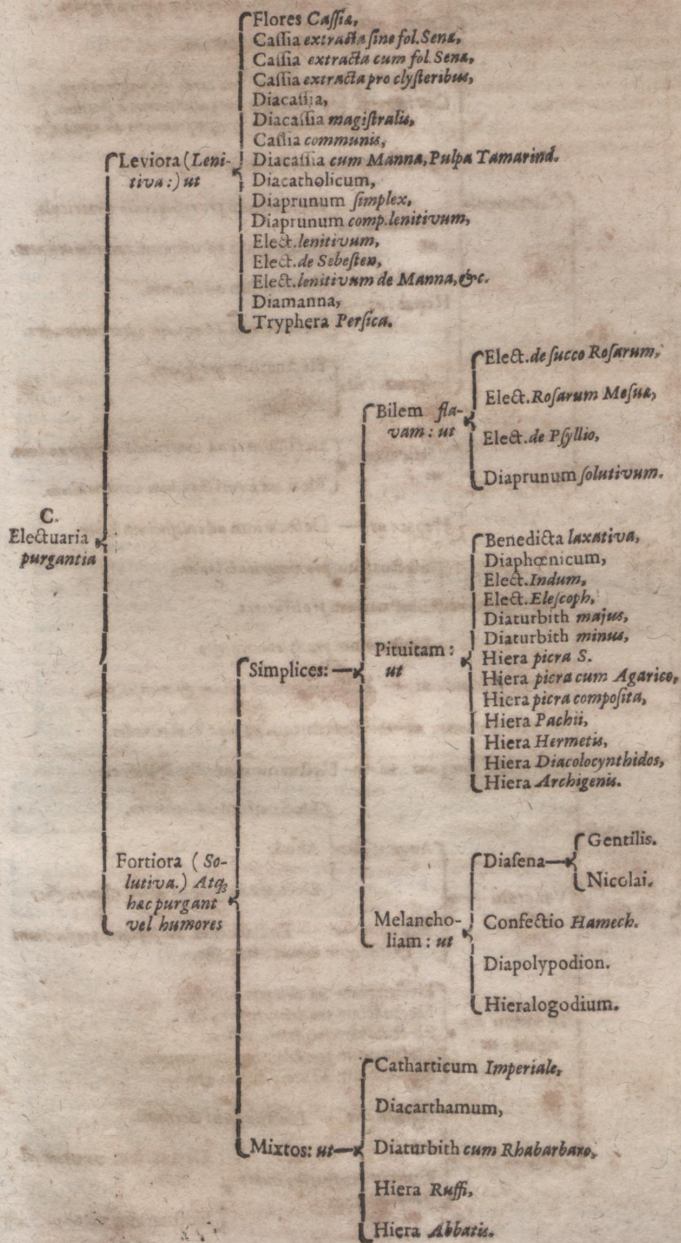 C.
Electuaria
purgantia
Leviora (Leni-
tiva:) ut
Flores Cassiæ,
Cassia extracta sine fol. Senæ,
Cassia extracta cum fol. Senæ,
Cassia extracta pro clysteribus,
Diacassia,
Diacassia magistralis,
Cassia communis,
Diacassia cum Manna, Pulpa Tamarind.
Diacatholicum,
Diaprunum simplex,
Diaprunum comp. lenitivum,
Elect. lenitivum,
Elect. de Sebesten,
Elect. lenitivum de Manna, &c.
Diamanna,
Tryphera Persica.
Fortiora (So-
lutiva.) Atq;
hæc purgant
vel humores
Simplices:
Bilem fla-
vam: ut
Elect. de succo Rosarum,
Elect. Rosarum Mesuæ,
Elect. de Psyllio,
Diaprunum solutivum.
Pituitam:
ut
Benedicta laxativa,
Diaphœnicum,
Elect. Indum,
Elect. Elescoph,
Diaturbith majus,
Diaturbith minus,
Hiera picra S.
Hiera picra cum Agarico,
Hiera picra composita,
Hiera Pachii,
Hiera Hermetis,
Hiera Diacolocynthidos,
Hiera Archigenis.
Melancho-
liam: ut
Diasena
Gentilis.
Nicolai.
Confectio Hamech.
Diapolypodion.
Hieralogodium.
Mixtos: ut
Catharticum Imperiale,
Diacarthamum,
Diaturbith cum Rhabarbaro,
Hiera Ruffi,
Hiera Abbatis.